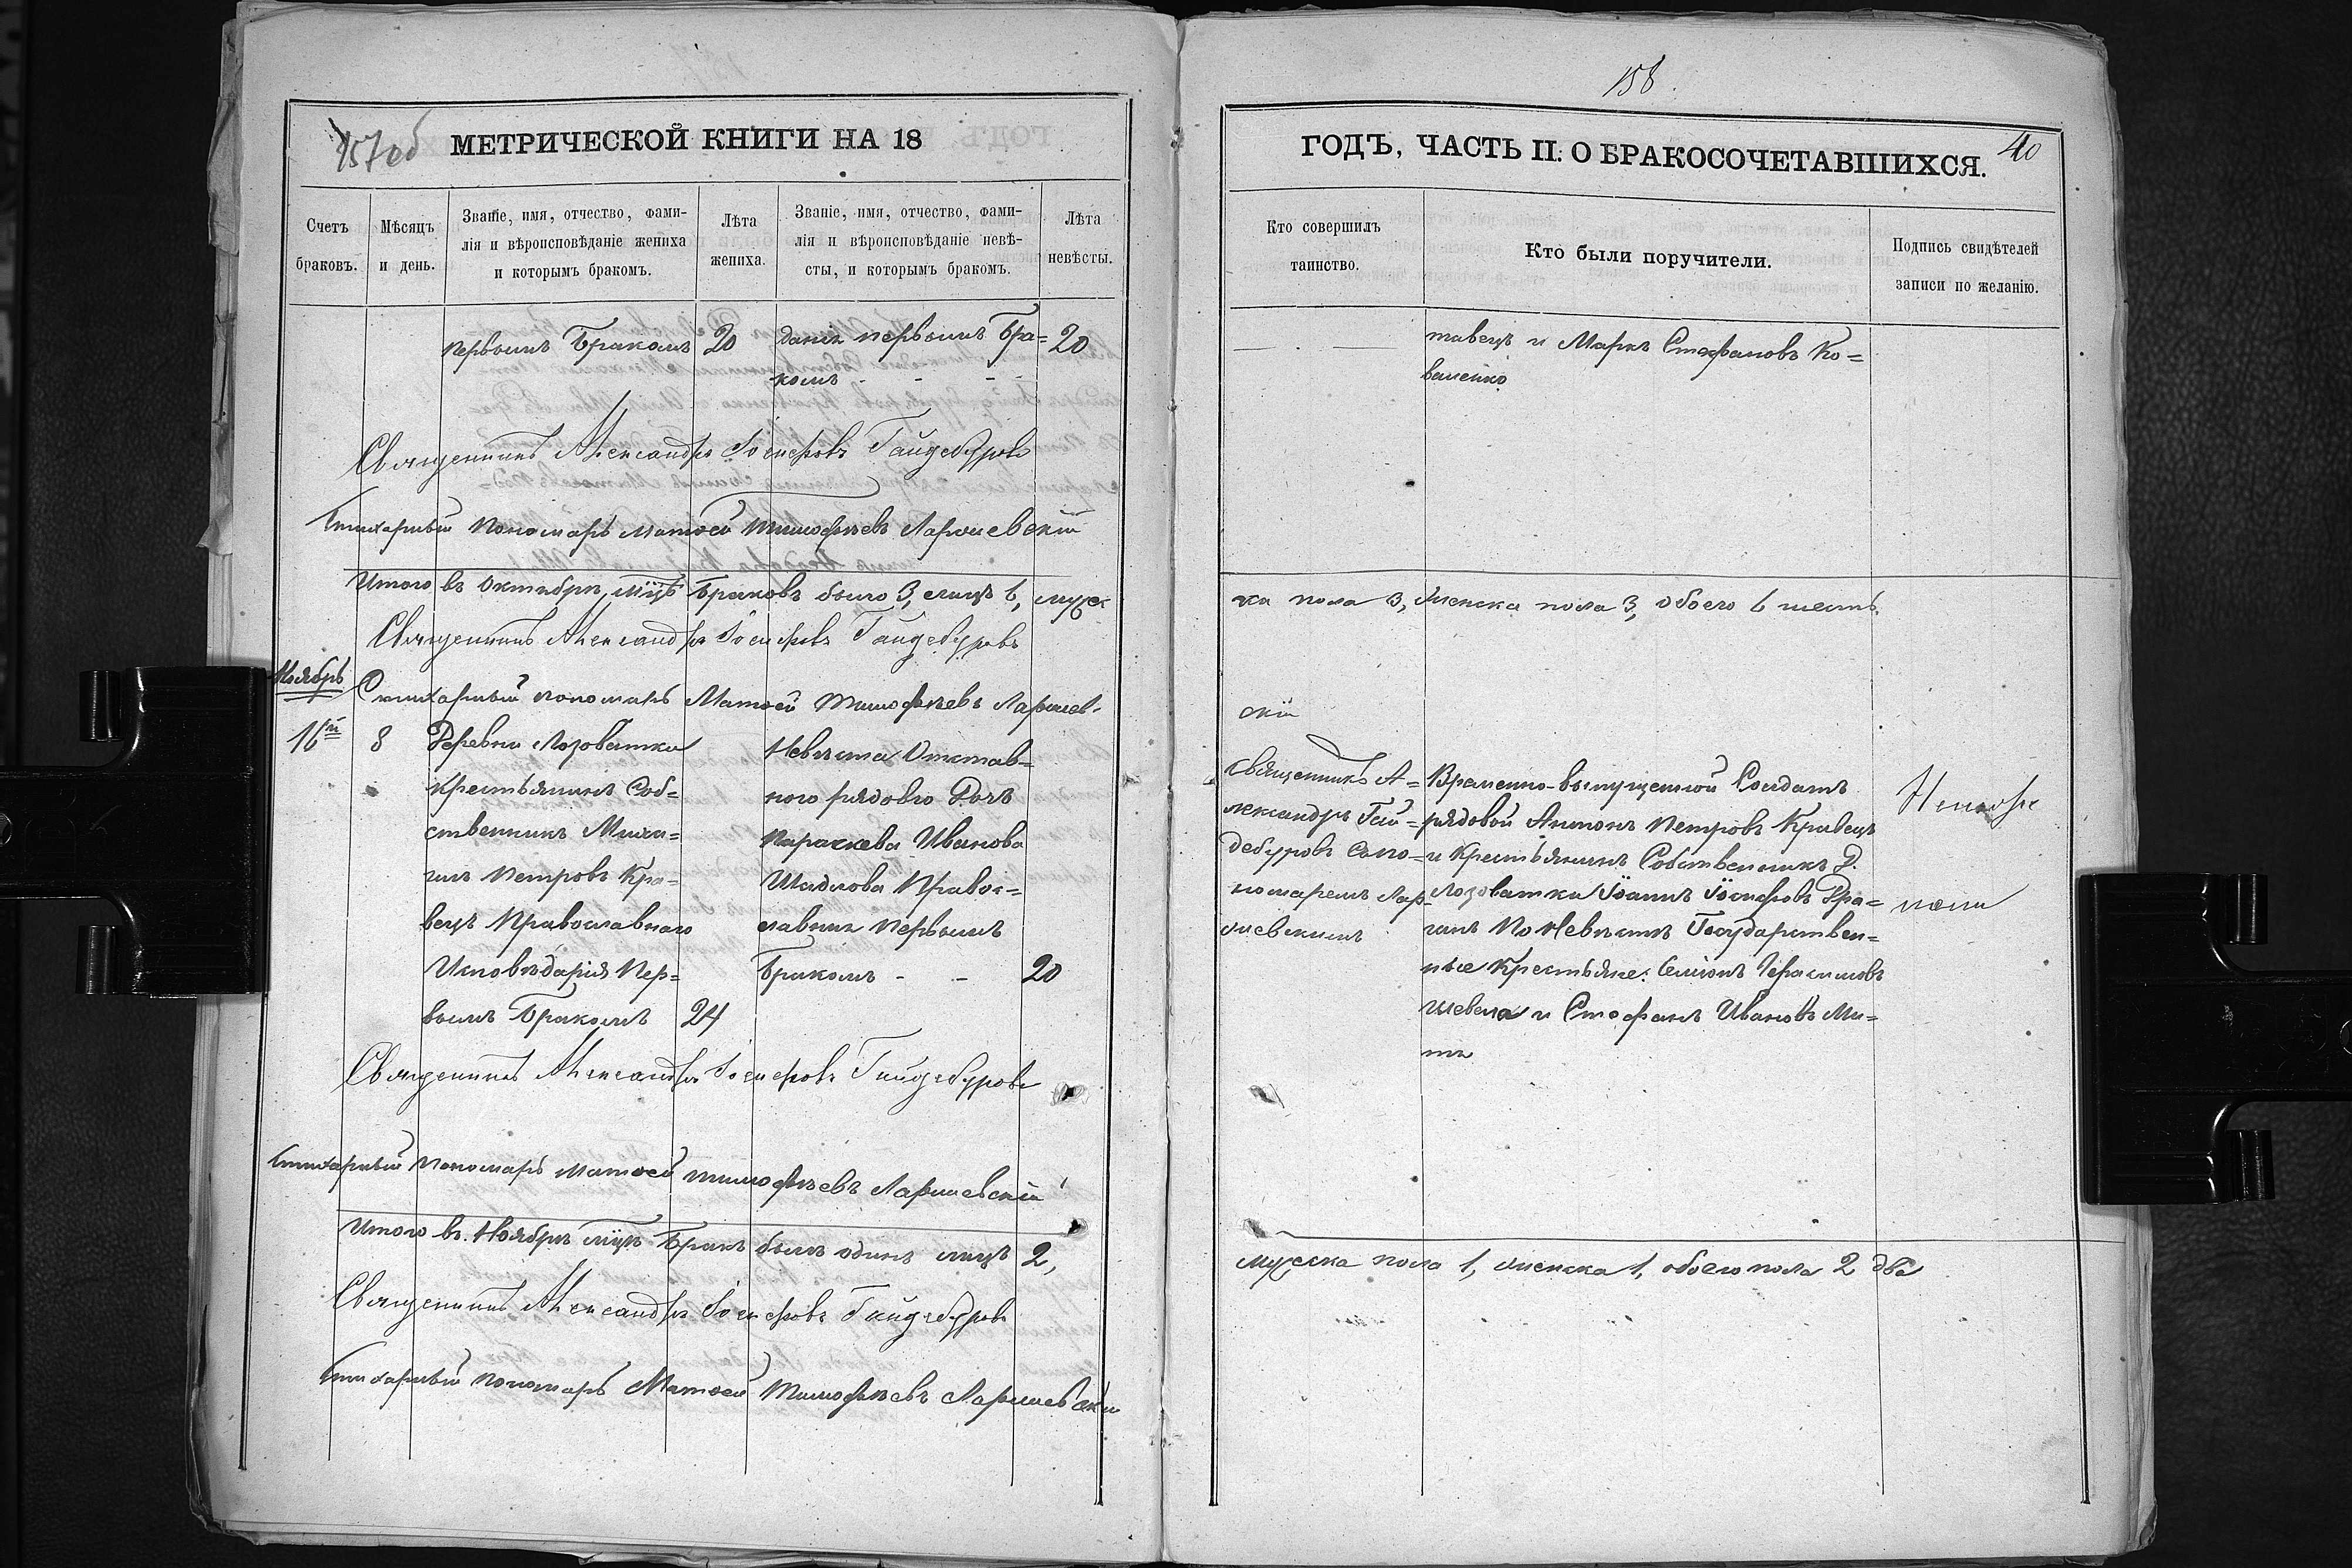 157 об
МЕТРИЧЕСКОЙ КНИГИ НА 18
Счетъ браковъ.
Мѣсяцъ и день.
Званіе, имя, отчество, фами-
лія и вѣроисповѣданіе жениха
и которымъ бракомъ.
Лѣта жениха.
Званіе, имя, отчество, фами-
лія и вѣроисповѣданіе невѣ-
сты, и которымъ бракомъ.
Лѣта невѣсты.
первымъ Бракомъ 20 данія первымъ Бра= 20
комъ - - -
Священникъ Александръ Іосифовъ Гайдебуровъ
Стихарный Пономарь Матѳей Тимофѣевъ Ларшевскій
Итого въ Октябрѣ мцѣ Браковъ было 3, лицъ 6, муже
Священникъ Александръ Іосифовъ Гайдебуровъ
Ноябрь
Стихарный пономарь Матѳей Тимофѣевъ Ларшев-
16й 8
Деревни Лозоватки
Крестьянинъ Соб=
ственникъ Миха=
илъ Петровъ Кра=
вецъ Православнаго
Исповѣданія Пер=
вымъ Бракомъ 24
Невѣста Отстав=
ного рядового Дочь
Параскева Иванова
Шадлова Правос=
лавная Первымъ
Бракомъ - - 20
Священникъ Александръ Іосифовъ Гайдебуровъ
Стихарный Пономарь Матѳей Тимофѣевъ Ларшевскій
Итого въ Ноябрѣ мцѣ Бракъ былъ одинъ лицъ 2,
Священникъ Александръ Іосифовъ Гайдебуровъ
Стихарный пономарь Матѳей Тимофѣевъ Ларшевскій
158.
40
ГОДЪ, ЧАСТЬ II: О БРАКОСОЧЕТАВШИХСЯ.
Кто совершилъ таинство.
Кто были поручители.
Подпись свидѣтелей
записи по желанію.
тавецъ и Маркъ Стефановъ Ко=
валенко
ска пола 3, женска пола 3, обоего 6 шесть.
скій
Священникъ А=
лександръ Гай=
дебуровъ с по=
номаремъ Лар-
шевскимъ
Временно-выпущенной Солдатъ
рядовой Антонъ Петровъ Кравецъ
и Крестьянинъ Собственникъ Д.
Лозоватки Іоаннъ Іосифовъ Дра=
ганъ По Невѣстѣ Государствен=
ные Крестьяне: Семіонъ Герасимовъ
Шевела и Стефанъ Ивановъ Ми=
мужеска пола 1, женска 1, обоего пола 2 два